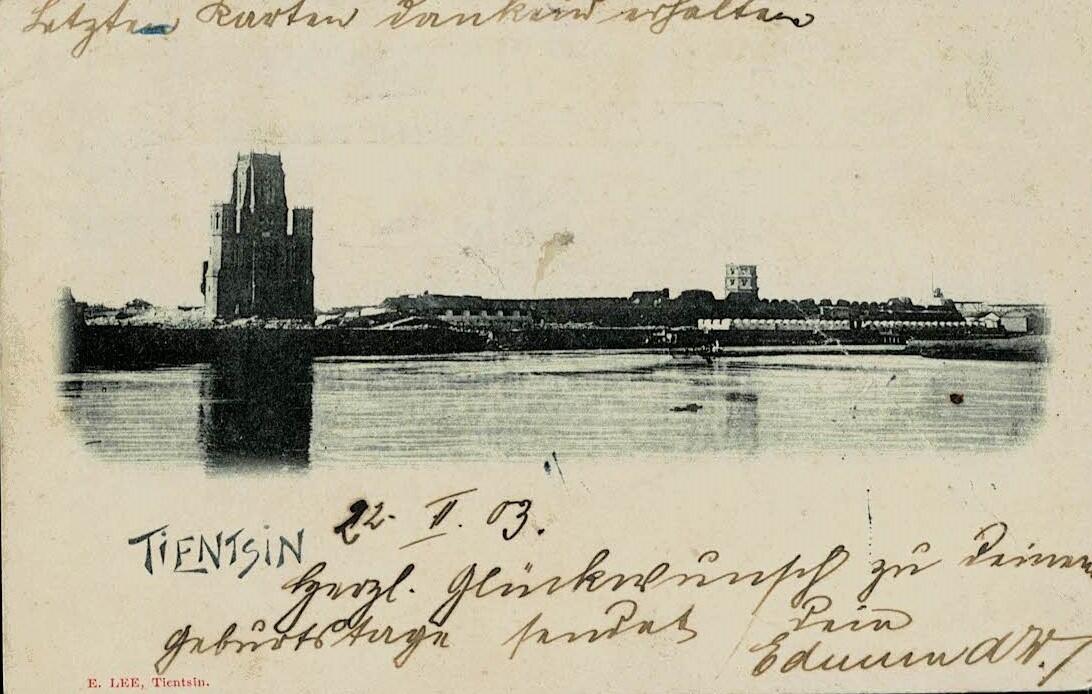 Letzten Karten dankend erhalten
22. II. 03.
TIENTSIN
Herzl. Glückwunsch zu Deinem
Geburtstage sendet Dein
Edmund W.
E. LEE, Tientsin.